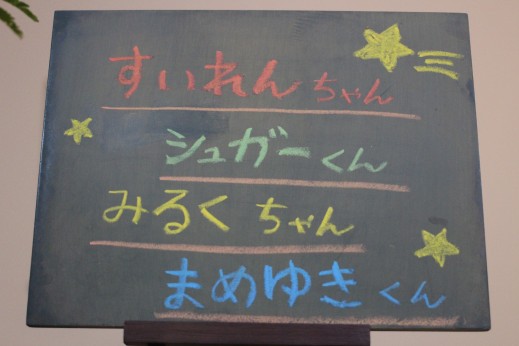 すいれんちゃん
シュガーくん
みるくちゃん
まめゆきくん